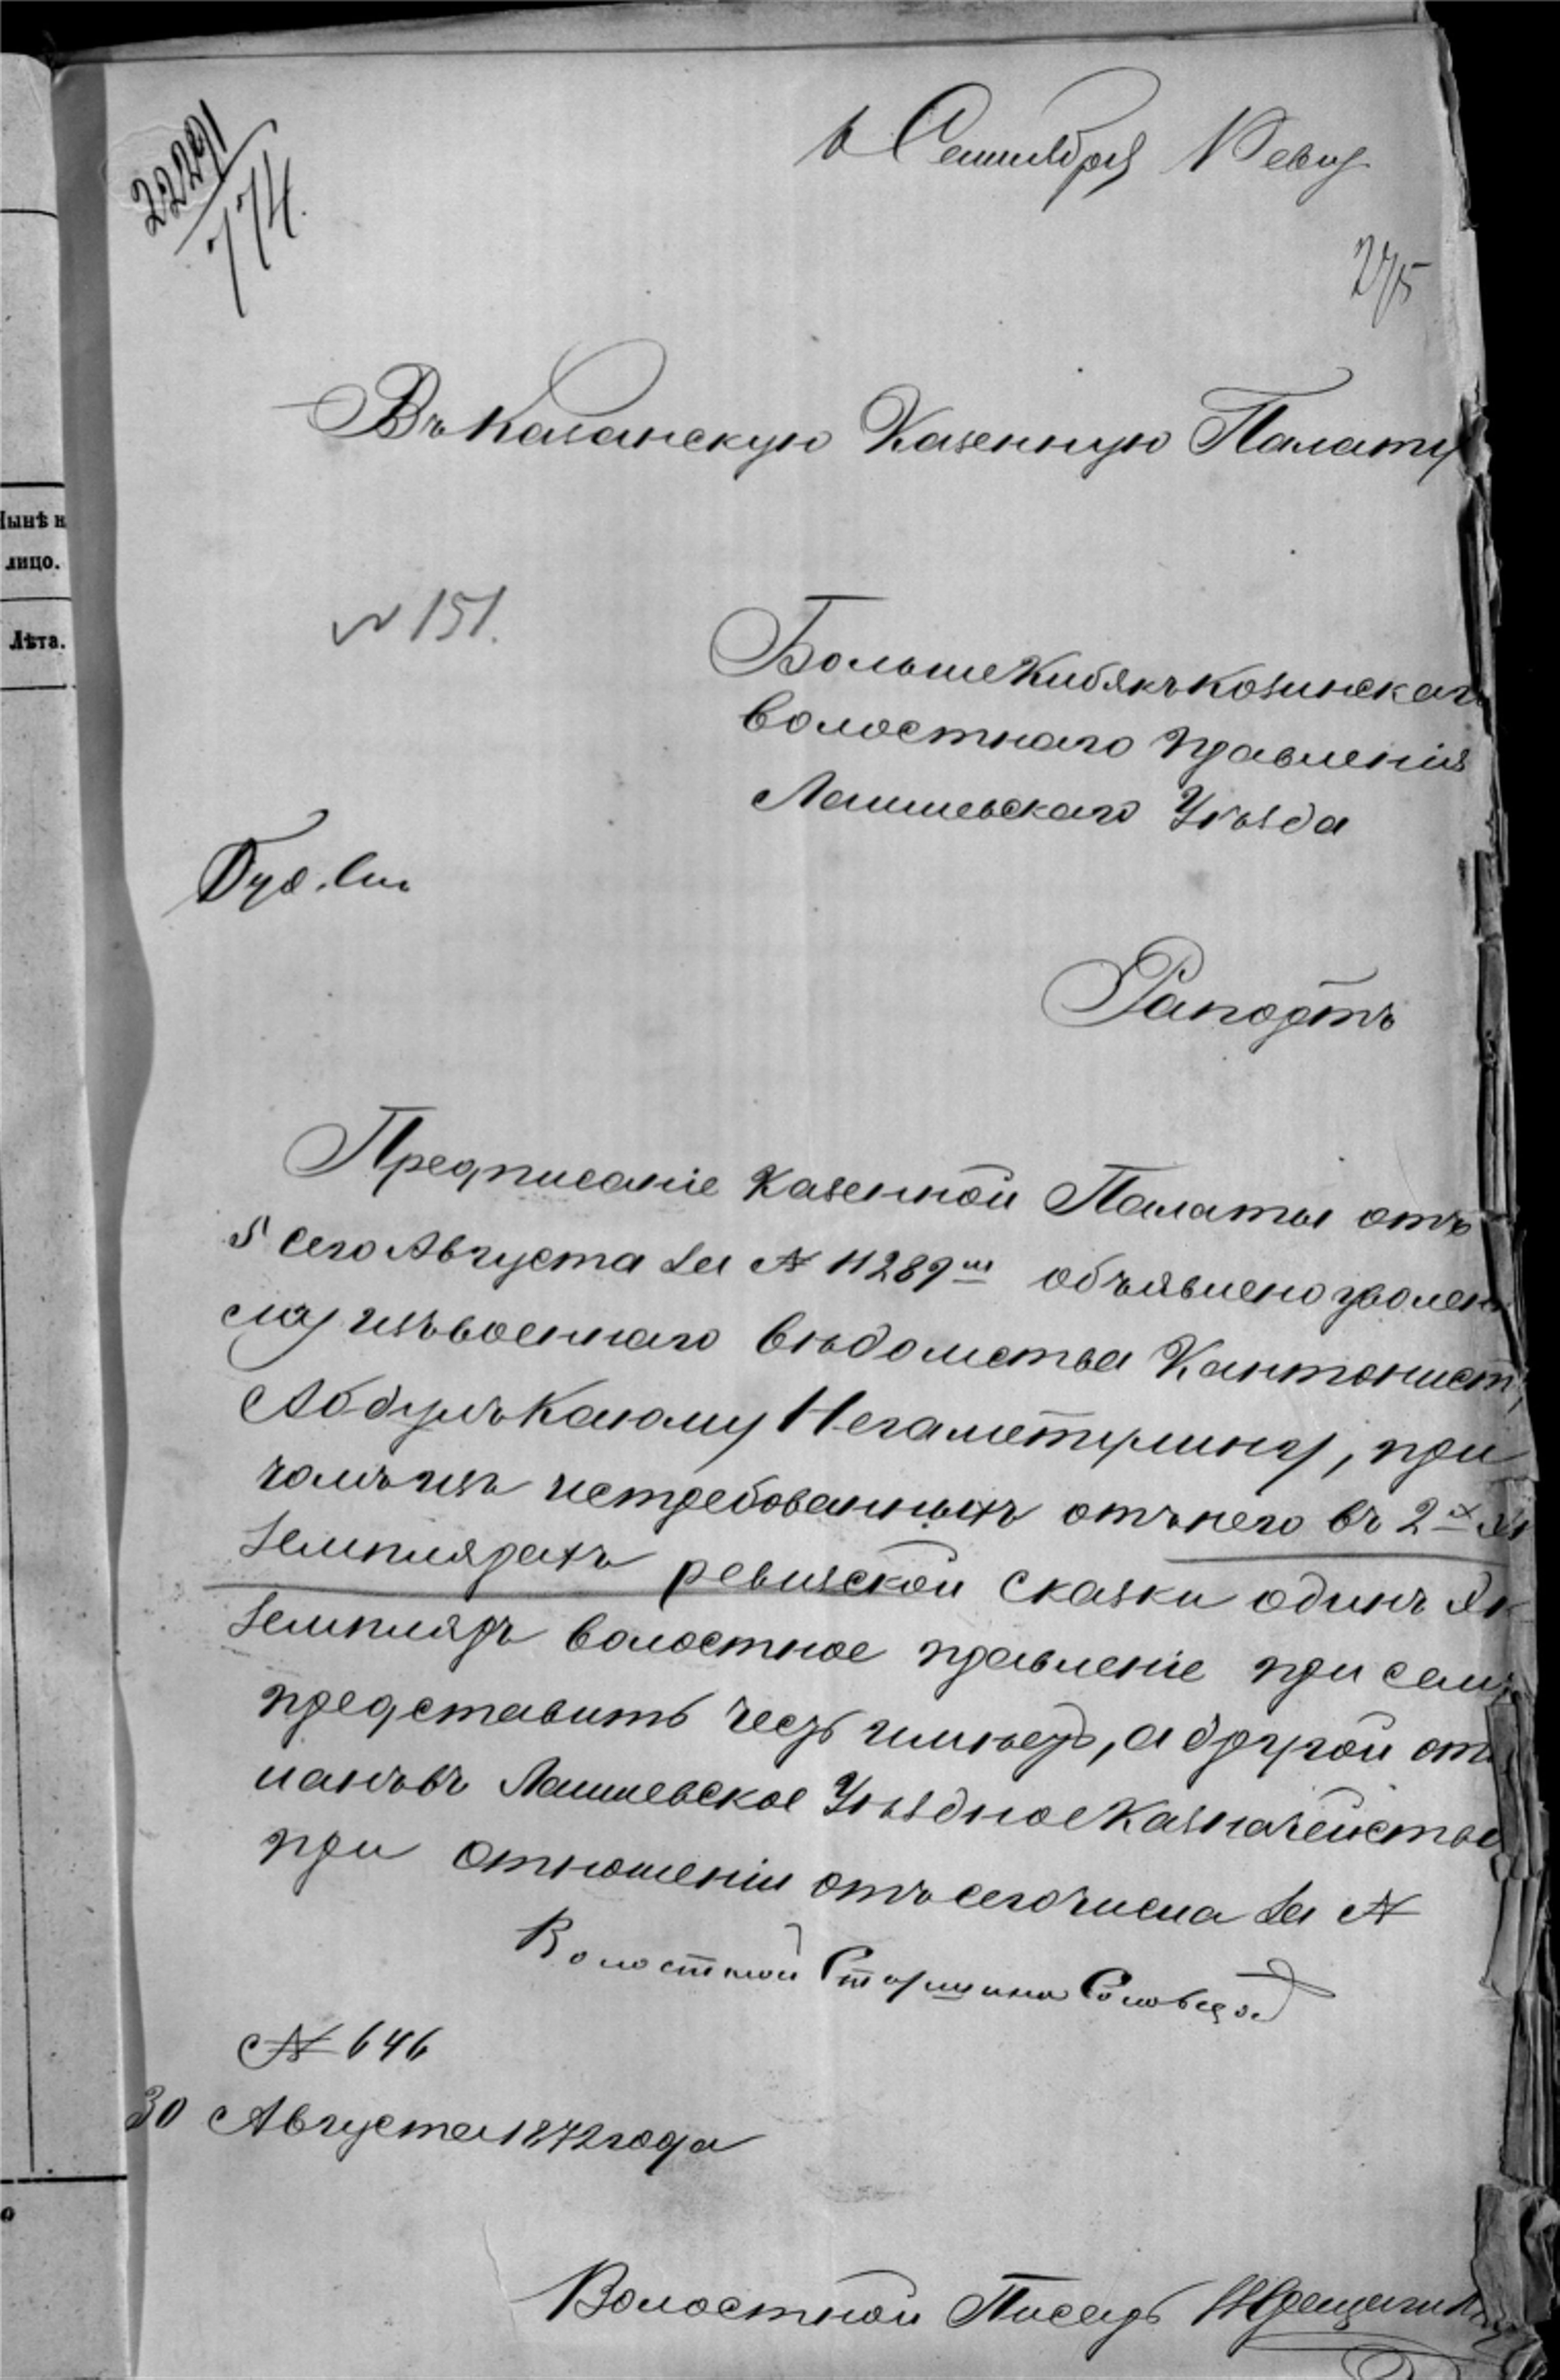 22291
774.
6 Сентября Ревиз
275
Въ Казанскую Казенную Палату
Нынѣ н
лицо.
№ 151.
Лѣта.
Больше Кибякъ Козинскаго
волостнаго правленія
Лаишевскаго Уѣзда
Рапортъ
Предписаніе Казенной Палаты отъ
5 сего Августа за № 11289м объявлено уволен
му изъ военнаго вѣдомства Кантонисту
Абдулъ Каюму Негаметулину, при
чомъ изъ истребованныхъ отъ него въ 2х эк
земплярахъ ревизской сказки одинъ эк
земпляръ волостное правленіе при семъ
представить честь имѣетъ, а другой от
въ Лаишевское Уѣздное Казначейство
при отношеніи отъ сего числа за №
Волостной Старшина Соловцов
№ 646
30 Августа 1872 года
Волостной Писарь